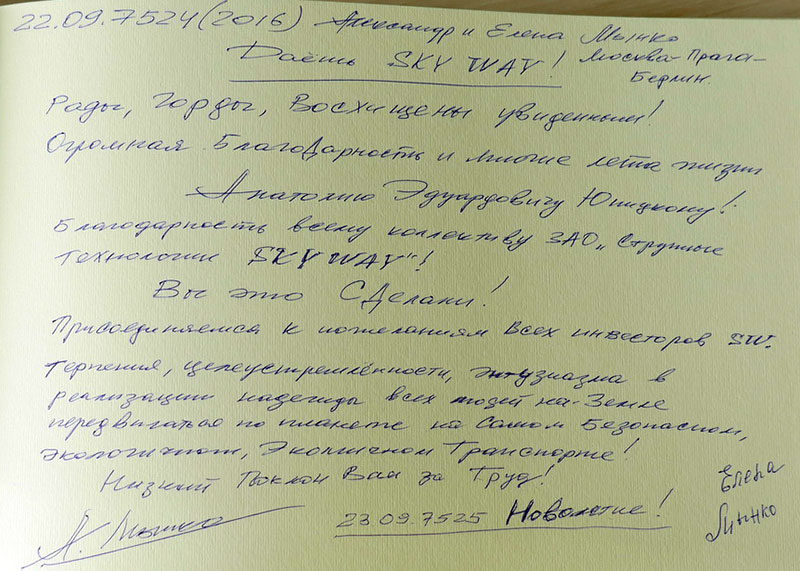 22.09.7524(2016) Александр и Елена Мынко
Даёшь SKY WAY! Москва-Прага-
Берлин.
Рады, Горды, Восхищены увиденным!
Огромная Благодарность и многие лета жизни
Анатолию Эдуардовичу Юницкому!
Благодарность всему коллективу ЗАО „Струнные
технологии SKY WAY"!
Вы это Сделали!
Присоединяемся к пожеланиям Всех инвесторов SW.
Терпения, целеустремлённости, энтузиазма в
реализации надежды всех людей на Земле
передвигаться по планете на Самом Безопасном,
экологичном, Экономичном Транспорте!
Низкий Поклон Вам за Труд!
А. Мынко 23.09.7525 Новолетие!
Елена
Мынко